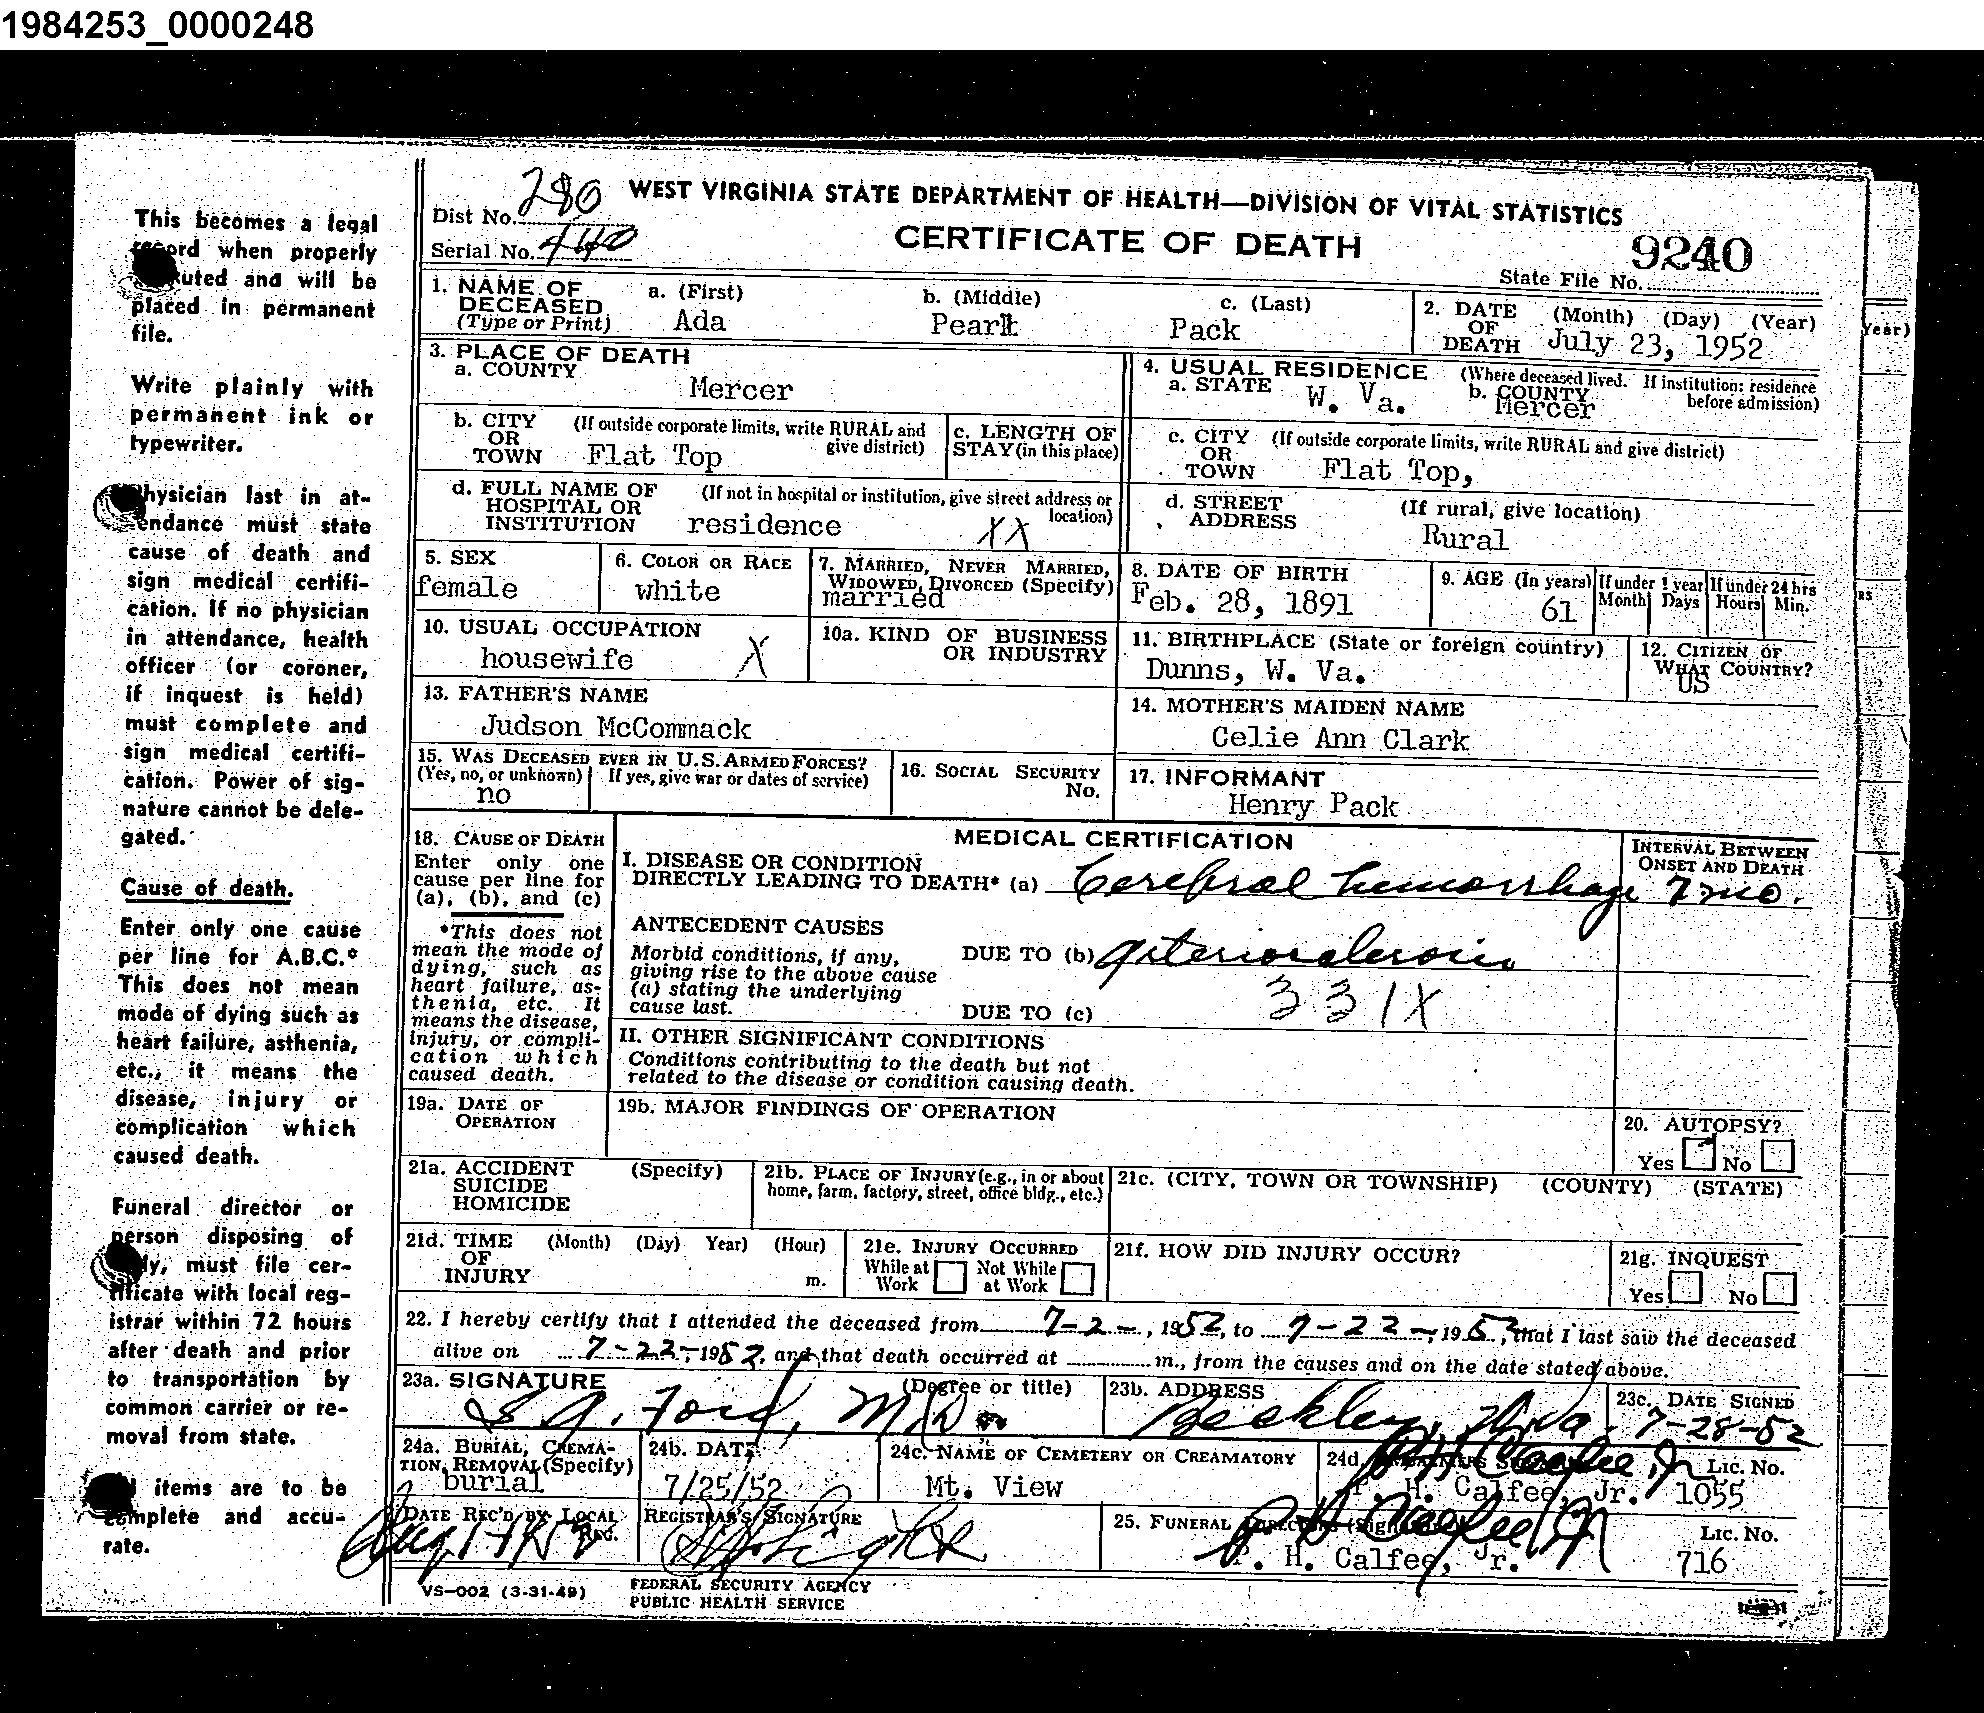 1984253_0000248
WEST VIRGINIA STATE DEPARTMENT OF HEALTH—DIVISION OF VITAL STATISTICS
CERTIFICATE OF DEATH
Dist No. 280
Serial No. 440
9240
State File No.
1. NAME OF DECEASED (Type or Print) a. (First) Ada b. (Middle) Pearl c. (Last) Pack
2. DATE OF DEATH (Month) (Day) (Year) July 23, 1952
3. PLACE OF DEATH
a. COUNTY Mercer
b. CITY OR TOWN (If outside corporate limits, write RURAL and give district) Flat Top
c. LENGTH OF STAY (in this place)
d. FULL NAME OF HOSPITAL OR INSTITUTION (If not in hospital or institution, give street address or location) residence XX
4. USUAL RESIDENCE (Where deceased lived. If institution: residence before admission)
a. STATE W. Va. b. COUNTY Mercer
c. CITY OR TOWN (If outside corporate limits, write RURAL and give district) Flat Top,
d. STREET ADDRESS (If rural, give location) Rural
5. SEX female
6. COLOR OR RACE white
7. MARRIED, NEVER MARRIED, WIDOWED, DIVORCED (Specify) married
8. DATE OF BIRTH Feb. 28, 1891
9. AGE (In years) 61 If under 1 year Month Days If under 24 hrs Hours Min.
10. USUAL OCCUPATION housewife X
10a. KIND OF BUSINESS OR INDUSTRY
11. BIRTHPLACE (State or foreign country) Dunns, W. Va.
12. CITIZEN OF WHAT COUNTRY? US
13. FATHER'S NAME Judson McCommack
14. MOTHER'S MAIDEN NAME Celie Ann Clark
15. WAS DECEASED EVER IN U.S. ARMED FORCES? (Yes, no, or unknown) no If yes, give war or dates of service)
16. SOCIAL SECURITY No.
17. INFORMANT Henry Pack
18. CAUSE OF DEATH
Enter only one cause per line for (a), (b), and (c)
*This does not mean the mode of dying, such as heart failure, asthenia, etc. It means the disease, injury, or complication which caused death.
MEDICAL CERTIFICATION
INTERVAL BETWEEN ONSET AND DEATH
I. DISEASE OR CONDITION DIRECTLY LEADING TO DEATH* (a) Cerebral hemorrhage 7 mo.
ANTECEDENT CAUSES
Morbid conditions, if any, giving rise to the above cause (a) stating the underlying cause last.
DUE TO (b) arteriosclerosis
331X
DUE TO (c)
II. OTHER SIGNIFICANT CONDITIONS
Conditions contributing to the death but not related to the disease or condition causing death.
19a. DATE OF OPERATION
19b. MAJOR FINDINGS OF OPERATION
20. AUTOPSY? Yes No
21a. ACCIDENT SUICIDE HOMICIDE (Specify)
21b. PLACE OF INJURY (e.g., in or about home, farm, factory, street, office bldg., etc.)
21c. (CITY, TOWN OR TOWNSHIP) (COUNTY) (STATE)
21d. TIME OF INJURY (Month) (Day) Year) (Hour) m.
21e. INJURY OCCURRED While at Work Not While at Work
21f. HOW DID INJURY OCCUR?
21g. INQUEST Yes No
22. I hereby certify that I attended the deceased from 7-2-, 1952, to 7-22-, 1952, that I last saw the deceased
alive on 7-22-, 1952, and that death occurred at m., from the causes and on the date stated above.
23a. SIGNATURE (Degree or title) S. A. Ford, M.D.
23b. ADDRESS Beckley, W.Va.
23c. DATE SIGNED 7-28-52
24a. BURIAL, CREMATION, REMOVAL (Specify) burial
24b. DATE 7/25/52
24c. NAME OF CEMETERY OR CREAMATORY Mt. View
24d. P. H. Calfee, Jr. LIC. NO. 1055
DATE REC'D BY LOCAL REG. Aug 1-1952
REGISTRAR'S SIGNATURE
25. FUNERAL P. H. Calfee, Jr. LIC. NO. 716
VS-002 (3-31-49)
FEDERAL SECURITY AGENCY
PUBLIC HEALTH SERVICE
This becomes a legal
when properly
and will be
placed in permanent
file.
Write plainly with
permanent ink or
typewriter.
Physician last in at-
tendance must state
cause of death and
sign medical certifi-
cation. If no physician
in attendance, health
officer (or coroner,
if inquest is held)
must complete and
sign medical certifi-
cation. Power of sig-
nature cannot be dele-
gated.
Cause of death.
Enter only one cause
per line for A.B.C.*
This does not mean
mode of dying such as
heart failure, asthenia,
etc., it means the
disease, injury or
complication which
caused death.
Funeral director or
person disposing of
must file cer-
tificate with local reg-
istrar within 72 hours
after death and prior
to transportation by
common carrier or re-
moval from state.
items are to be
complete and accu-
rate.
Year)